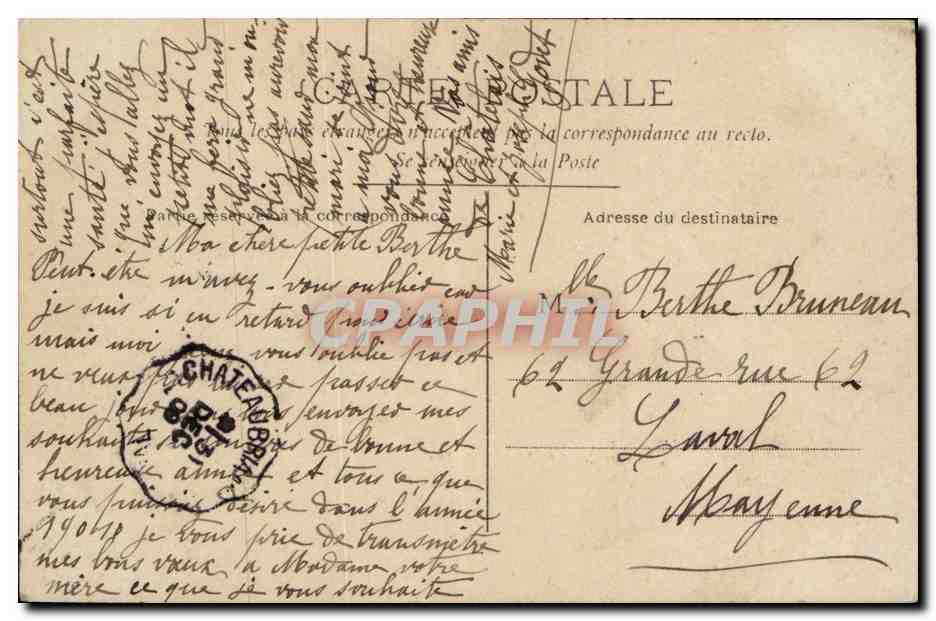 CARTE POSTALE
Tous les pays étrangers n'acceptent pas la correspondance au recto.
Se renseigner à la Poste
Partie réservée à la correspondance
Adresse du destinataire
Ma chère petite Berthe
Peut-être m'avez-vous oubliée car
je suis si en retard pour écrire
mais moi vous oublie pas et
ne veux pas passer ce
beau jour envoyer mes
souhaits de bonne et
heureuse année et tous ce que
vous puissiez désiré dans l'année
1904 je vous prie de transmetre
mes bons vœux a Madame votre
mère ce que je vous souhaite
surtout c'est
une parfaite
santé j'espère
que vous allez
m'envoyez un
petit mot il
me fera grand
plaisir ne m'ou-
bliez pas aurevoir
mon
mari se joint
a moi pour
vous
bonne et heureuse
année Vos amis
de
Marie et Joseph
Mlle Berthe Bruneau
62 Grande rue 62
Laval
Mayenne
CHATEAUBRIAN
DEC
CPAPHIL